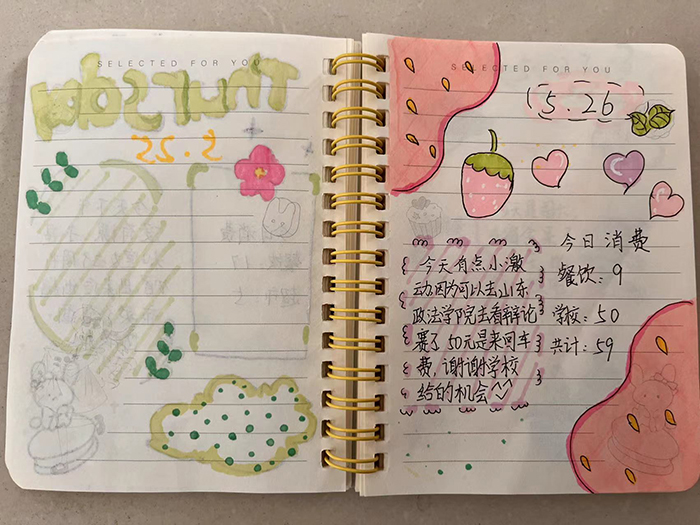 SELECTED FOR YOU
Thursday
5.25
SELECTED FOR YOU
5.26
今天有点小激
动,因为可以去山东
政法学院去看辩论
赛了 50元是来回车
费,谢谢学校
给的机会^^
今日消费
餐饮:9
学校:50
共计:59